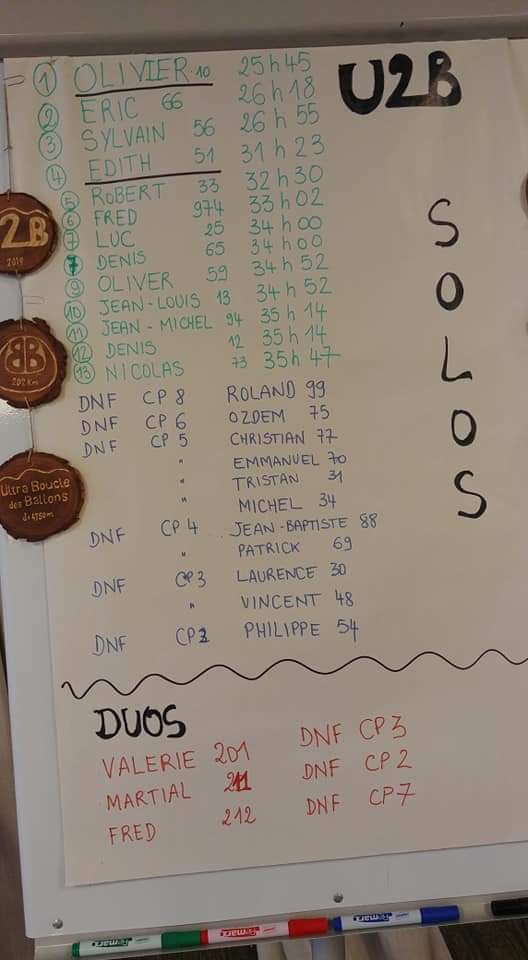 U2B
SOLOS
1 OLIVIER 10 25h45
2 ERIC 66 26h18
3 SYLVAIN 56 26h55
4 EDITH 51 31h23
5 ROBERT 33 32h30
6 FRED 974 33h02
7 LUC 25 34h00
7 DENIS 65 34h00
9 OLIVER 59 34h52
10 JEAN-LOUIS 13 34h52
11 JEAN-MICHEL 94 35h14
12 DENIS 12 35h14
13 NICOLAS 73 35h47
DNF CP8 ROLAND 99
DNF CP6 OZDEM 75
DNF CP5 CHRISTIAN 77
" EMMANUEL 70
" TRISTAN 31
" MICHEL 34
DNF CP4 JEAN-BAPTISTE 88
" PATRICK 69
DNF CP3 LAURENCE 30
" VINCENT 48
DNF CP2 PHILIPPE 54
DUOS
VALERIE 201 DNF CP3
MARTIAL 211 DNF CP2
FRED 212 DNF CP7
2B
2019
BB
202 Km
Ultra Boucle
des Ballons